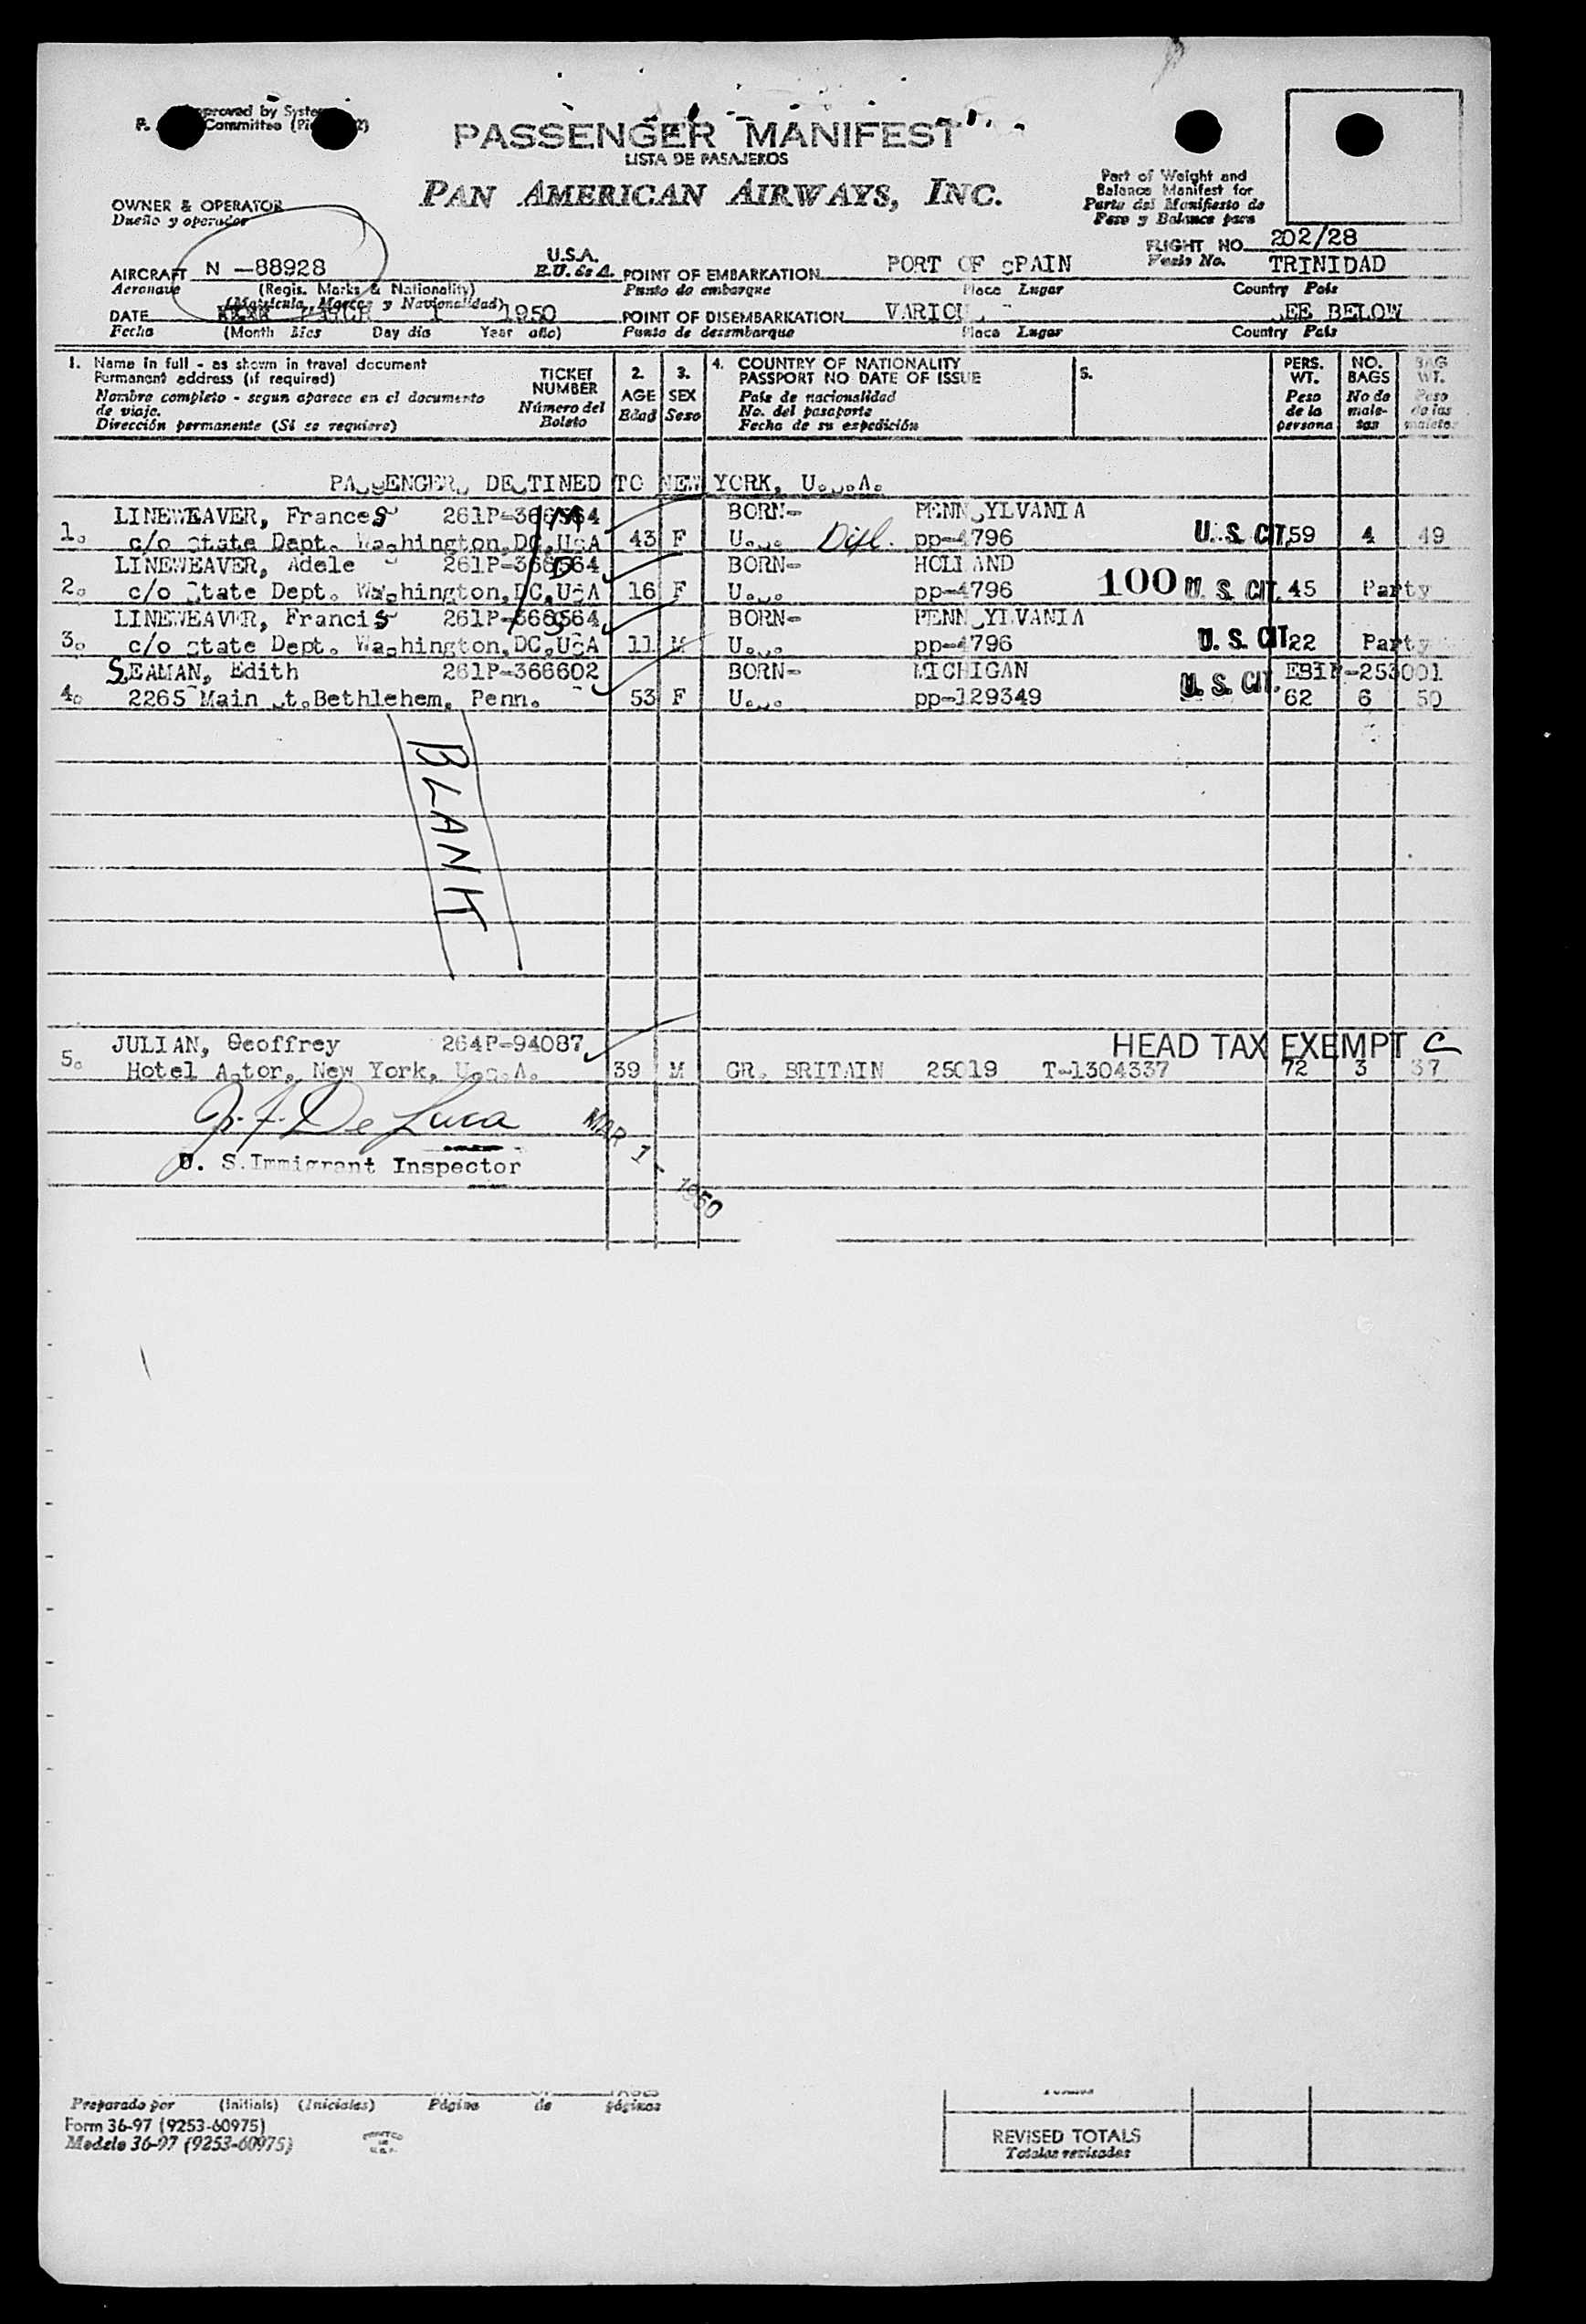 proved by Syste
P. Committee (Pi 2)
PASSENGER MANIFEST
LISTA DE PASAJEROS
PAN AMERICAN AIRWAYS, INC.
Part of Weight and
Balance Manifest for
Parte del Manifiesto de
Peso y Balance para
OWNER & OPERATOR
Dueño y operador
FLIGHT NO. 202/28
Vuelo No.
AIRCRAFT N -88928 U.S.A. POINT OF EMBARKATION PORT OF SPAIN TRINIDAD
Aeronave (Regis. Marks & Nationality) E.U. de A. Punto de embarque Place Lugar Country País
(Matrícula, Marcas y Nacionalidad)
DATE MARCH 1 1950 POINT OF DISEMBARKATION VARIOU EE BELOW
Fecha (Month Mes Day día Year año) Punto de desembarque Place Lugar Country País
1. Name in full - as shown in travel document
Permanent address (if required)
Nombre completo - segun aparece en el documento
de viaje.
Dirección permanente (Si se requiere)
TICKET
NUMBER
Número del
Boleto
2.
AGE
Edad
3.
SEX
Sexo
4. COUNTRY OF NATIONALITY
PASSPORT NO DATE OF ISSUE
País de nacionalidad
No. del pasaporte
Fecha de su expedición
5.
PERS.
WT.
Peso
de la
persona
NO.
BAGS
No de
male-
tas
BAG
WT.
Peso
de las
maletas
PASSENGERS DESTINED TO NEW YORK, U.S.A.
LINEWEAVER, Frances 261P-366564 BORN- PENNSYLVANIA
1. c/o State Dept. Washington,DC,USA 43 F U.S. Dipl. pp-4796 U.S. CIT. 59 4 49
LINEWEAVER, Adele 261P-366564 BORN- HOLLAND
2. c/o State Dept. Washington,DC,USA 16 F U.S. pp-4796 100 U.S. CIT. 45 Party
LINEWEAVER, Francis 261P-366564 BORN- PENNSYLVANIA
3. c/o State Dept. Washington,DC,USA 11 M U.S. pp-4796 U.S. CIT. 22 Party
SEAMAN, Edith 261P-366602 BORN- MICHIGAN EBIP-253001
4. 2265 Main St.Bethlehem, Penn. 53 F U.S. pp-129349 U.S. CIT. 62 6 50
BLANK
JULIAN, Geoffrey 264P-94087 HEAD TAX EXEMPT C
5. Hotel Astor, New York, U.S.A. 39 M GR. BRITAIN 25019 T-1304337 72 3 37
De Luca
U. S.Immigrant Inspector
MAR 1 - 1950
Preparado por (Initials) (Iniciales) Página de páginas
Form 36-97 (9253-60975)
Modelo 36-97 (9253-60975)
PRINTED
IN
U.S.A.
REVISED TOTALS
Totales revisados